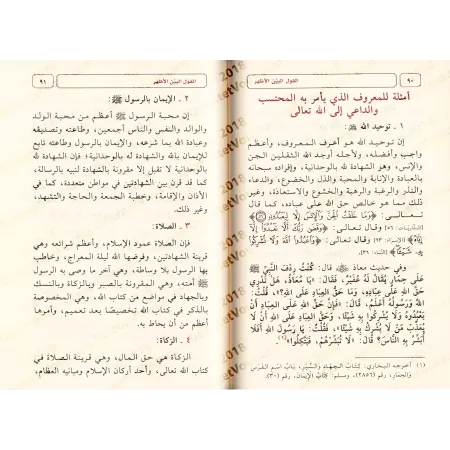 ٩٠
القول البيّن الأظهر
أمثلة للمعروف الذي يأمر به المحتسب
والداعي إلى الله تعالى
١ ـ توحيد الله ﷻ:
إن توحيد الله هو أعرف المعروف، وأعظم
واجب وأفضله، ولأجله أوجد الله الثقلين الجن
والإنس، وهو الشهادة لله بالوحدانية، وإفراده سبحانه
بالعبادة والإنابة والمحبة والذل والخضوع، والدعاء
والنذر والرغبة والرهبة والخشوع والاستعاذة، وغير
ذلك مما هو خالص حق الله على عباده، كما قال
تعالى: ﴿وَمَا خَلَقْتُ الْجِنَّ وَالْإِنسَ إِلَّا لِيَعْبُدُونِ﴾
[الذاريات: ٥٦] وقال تعالى: ﴿وَقَضَىٰ رَبُّكَ أَلَّا تَعْبُدُوا إِلَّا
إِيَّاهُ﴾ [الإسراء: ٢٣] وقال تعالى: ﴿وَاعْبُدُوا اللَّهَ وَلَا تُشْرِكُوا
بِهِ شَيْئًا﴾ [النساء: ٣٦].
وفي حديث معاذ قال: كُنْتُ رِدْفَ النَّبِيِّ ﷺ
عَلَى حِمَارٍ يُقَالُ لَهُ عُفَيْرٌ، فَقَالَ: «يَا مُعَاذُ، هَلْ تَدْرِي
حَقَّ اللهِ عَلَى عِبَادِهِ، وَمَا حَقُّ الْعِبَادِ عَلَى اللهِ؟»، قُلْتُ:
اللهُ وَرَسُولُهُ أَعْلَمُ، قَالَ: «فَإِنَّ حَقَّ اللهِ عَلَى الْعِبَادِ أَنْ
يَعْبُدُوهُ وَلَا يُشْرِكُوا بِهِ شَيْئًا، وَحَقَّ الْعِبَادِ عَلَى اللهِ أَنْ لَا
يُعَذِّبَ مَنْ لَا يُشْرِكُ بِهِ شَيْئًا»، فَقُلْتُ: يَا رَسُولَ اللهِ أَفَلَا
أُبَشِّرُ بِهِ النَّاسَ؟ قَالَ: «لَا تُبَشِّرْهُمْ، فَيَتَّكِلُوا»(١).
(١) أخرجه البخاري: كِتَابُ الْجِهَادِ وَالسِّيَرِ، بَابُ اسْمِ الْفَرَسِ
وَالْحِمَارِ، رقم (٢٨٥٦)، ومسلم: كِتَابُ الْإِيمَانَ، رقم (٣٠).
القول البيّن الأظهر
٩١
٢ ـ الإيمان بالرسول ﷺ:
إن محبة الرسول ﷺ أعظم من محبة الولد
والوالد والنفس والناس أجمعين، وطاعته وتصديقه
وعبادة الله بما شرعه، والإيمان بالرسول وطاعته تابع
للإيمان بالله والشهادة له بالوحدانية؛ فإن الشهادة لله
بالوحدانية لا تقبل إلا مقرونة بالشهادة لنبيه بالرسالة،
كما قد قرن بين الشهادتين في مواطن متعددة، كما في
الأذان والإقامة، وخطبة الجمعة والحاجة والتشهد،
وغير ذلك.
٣ ـ الصلاة:
فإن الصلاة عمود الإسلام، وأعظم شرائعه وهي
قرينة الشهادتين، وفرضها الله ليلة المعراج، وخاطب
بها الرسول بلا وساطة، وهي آخر ما وصى به الرسول
ﷺ أمته، وهي المقرونة بالصبر وبالزكاة وبالنسك
وبالجهاد في مواضع من كتاب الله، وهي المخصوصة
بالذكر في كتاب الله تخصيصًا بعد تعميم، وأمرها
أعظم من أن يحاط به.
٤ ـ الزكاة:
الزكاة هي حق المال، وهي قرينة الصلاة في
كتاب الله تعالى، وأحد أركان الإسلام ومبانيه العظام،